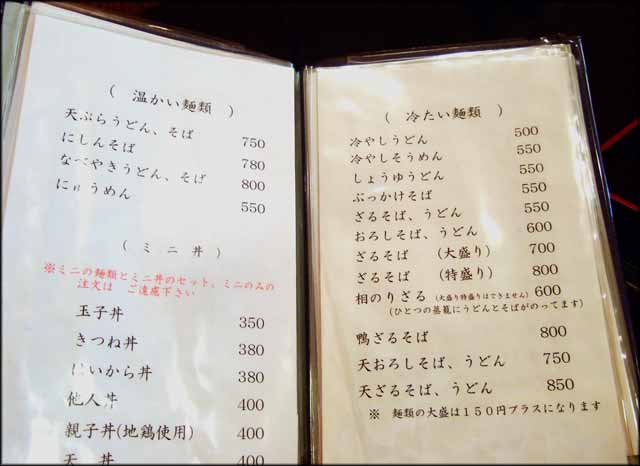 ( 温かい麺類 )
天ぷらうどん、そば 750
にしんそば 780
なべやきうどん、そば 800
にゅうめん 550
( ミニ丼 )
※ミニの麺類とミニ丼のセット、ミニのみの
注文は ご遠慮下さい
玉子丼 350
きつね丼 380
はいから丼 380
他人丼 400
親子丼(地鶏使用) 400
天 丼 400
( 冷たい麺類 )
冷やしうどん 500
冷やしそうめん 550
しょうゆうどん 550
ぶっかけそば 550
ざるそば、うどん 550
おろしそば、うどん 600
ざるそば (大盛り) 700
ざるそば (特盛り) 800
相のりざる (大盛り特盛りはできません) 600
(ひとつの蒸籠にうどんとそばがのってます)
鴨ざるそば 800
天おろしそば、うどん 750
天ざるそば、うどん 850
※ 麺類の大盛は150円プラスになります